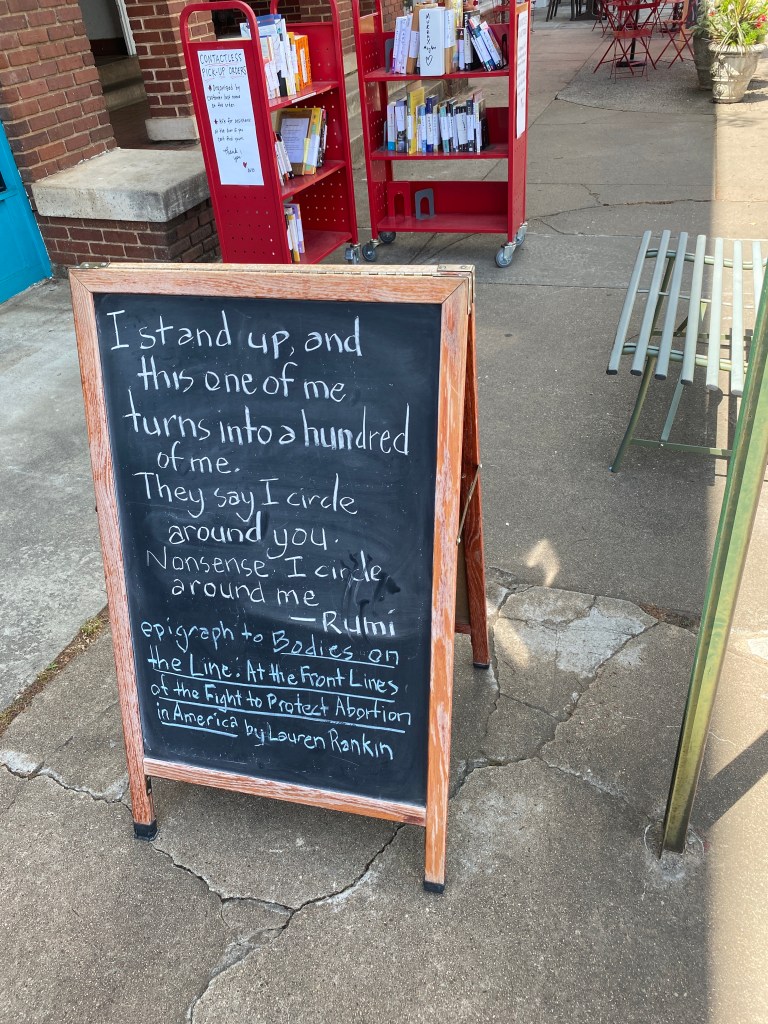 CONTACTLESS
PICK-UP ORDERS
thank
you
I stand up, and
this one of me
turns into a hundred
of me.
They say I circle
around you.
Nonsense. I circle
around me
—Rumi
epigraph to Bodies on
the Line: At the Front Lines
of the Fight to Protect Abortion
in America by Lauren Rankin